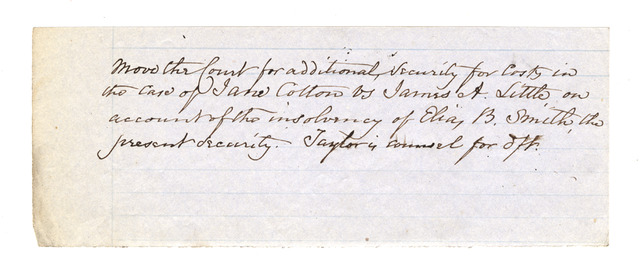 Move the Court for additional Security for Costs in
the case of Jane Cotton vs James A. Little, on
account of the insolvency of Elias B. Smith, the
present security. Taylor is counsel for Dft.